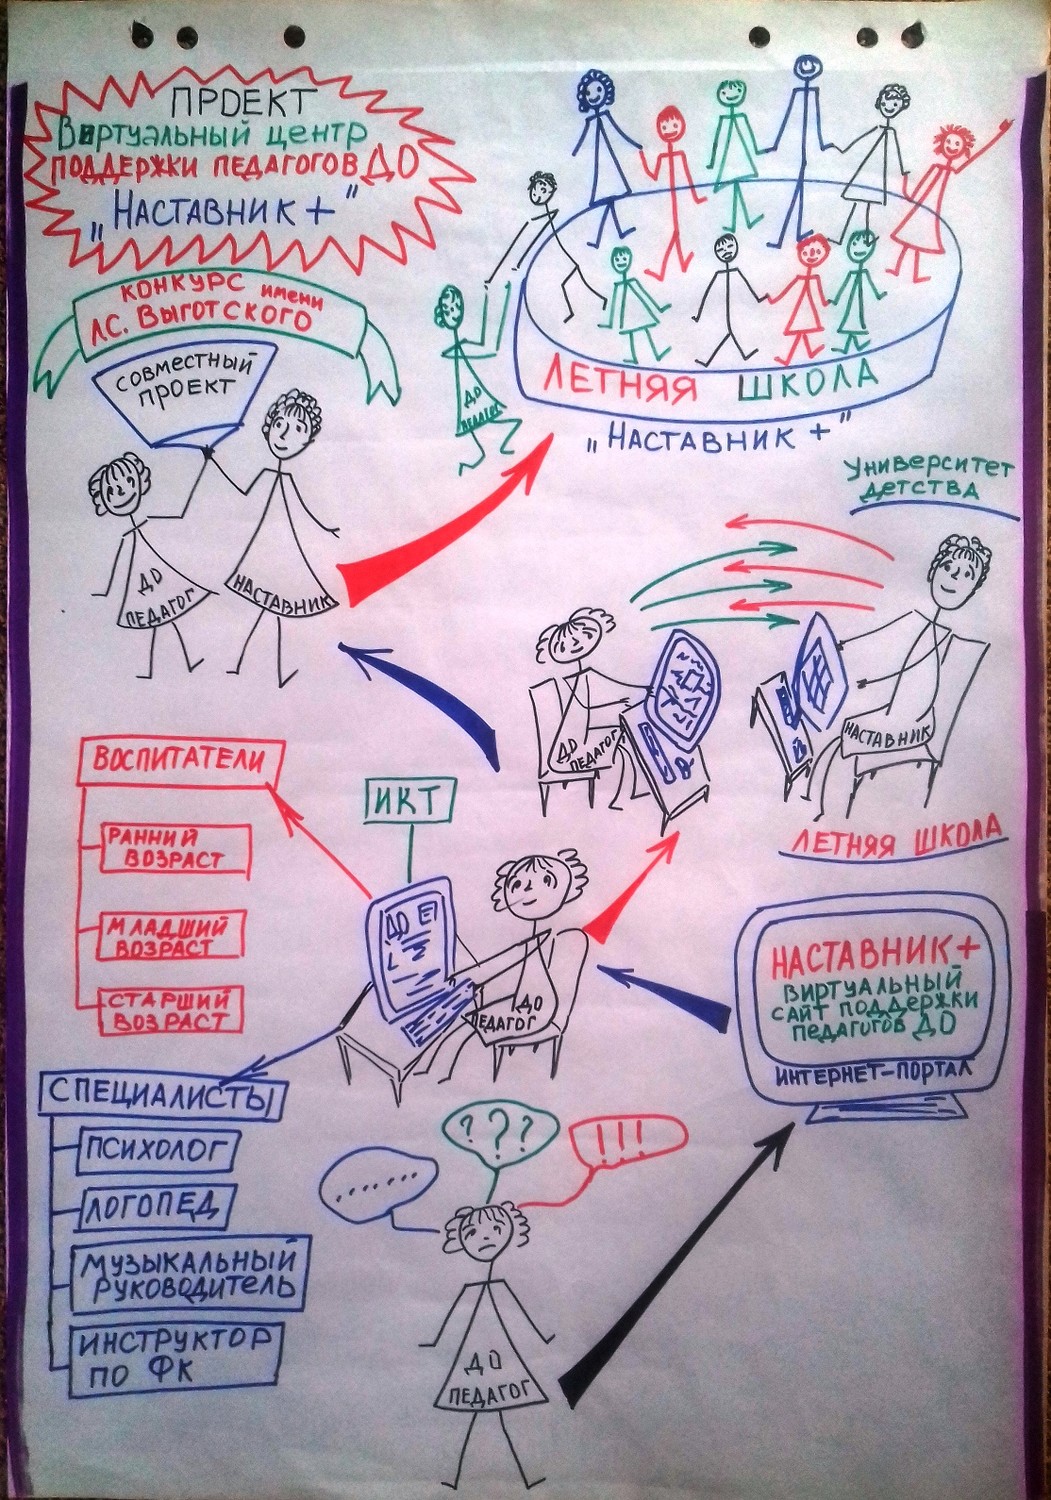 ПРОЕКТ
Виртуальный центр
ПОДДЕРЖКИ ПЕДАГОГОВ ДО
„НАСТАВНИК +”
КОНКУРС имени
Л.С. Выготского
СОВМЕСТНЫЙ
ПРОЕКТ
ДО
ПЕДАГОГ
НАСТАВНИК
ДО
ПЕДАГОГ
ЛЕТНЯЯ ШКОЛА
„НАСТАВНИК +”
Университет
детства
ДО
ПЕДАГОГ
НАСТАВНИК
ЛЕТНЯЯ ШКОЛА
ВОСПИТАТЕЛИ
РАННИЙ
ВОЗРАСТ
МЛАДШИЙ
ВОЗРАСТ
СТАРШИЙ
ВОЗРАСТ
ИКТ
ДО
ДО
ПЕДАГОГ
НАСТАВНИК +
ВИРТУАЛЬНЫЙ
САЙТ ПОДДЕРЖКИ
ПЕДАГОГОВ ДО
ИНТЕРНЕТ-ПОРТАЛ
СПЕЦИАЛИСТЫ
ПСИХОЛОГ
ЛОГОПЕД
МУЗЫКАЛЬНЫЙ
РУКОВОДИТЕЛЬ
ИНСТРУКТОР
ПО ФК
.......
???
!!!
ДО
ПЕДАГОГ